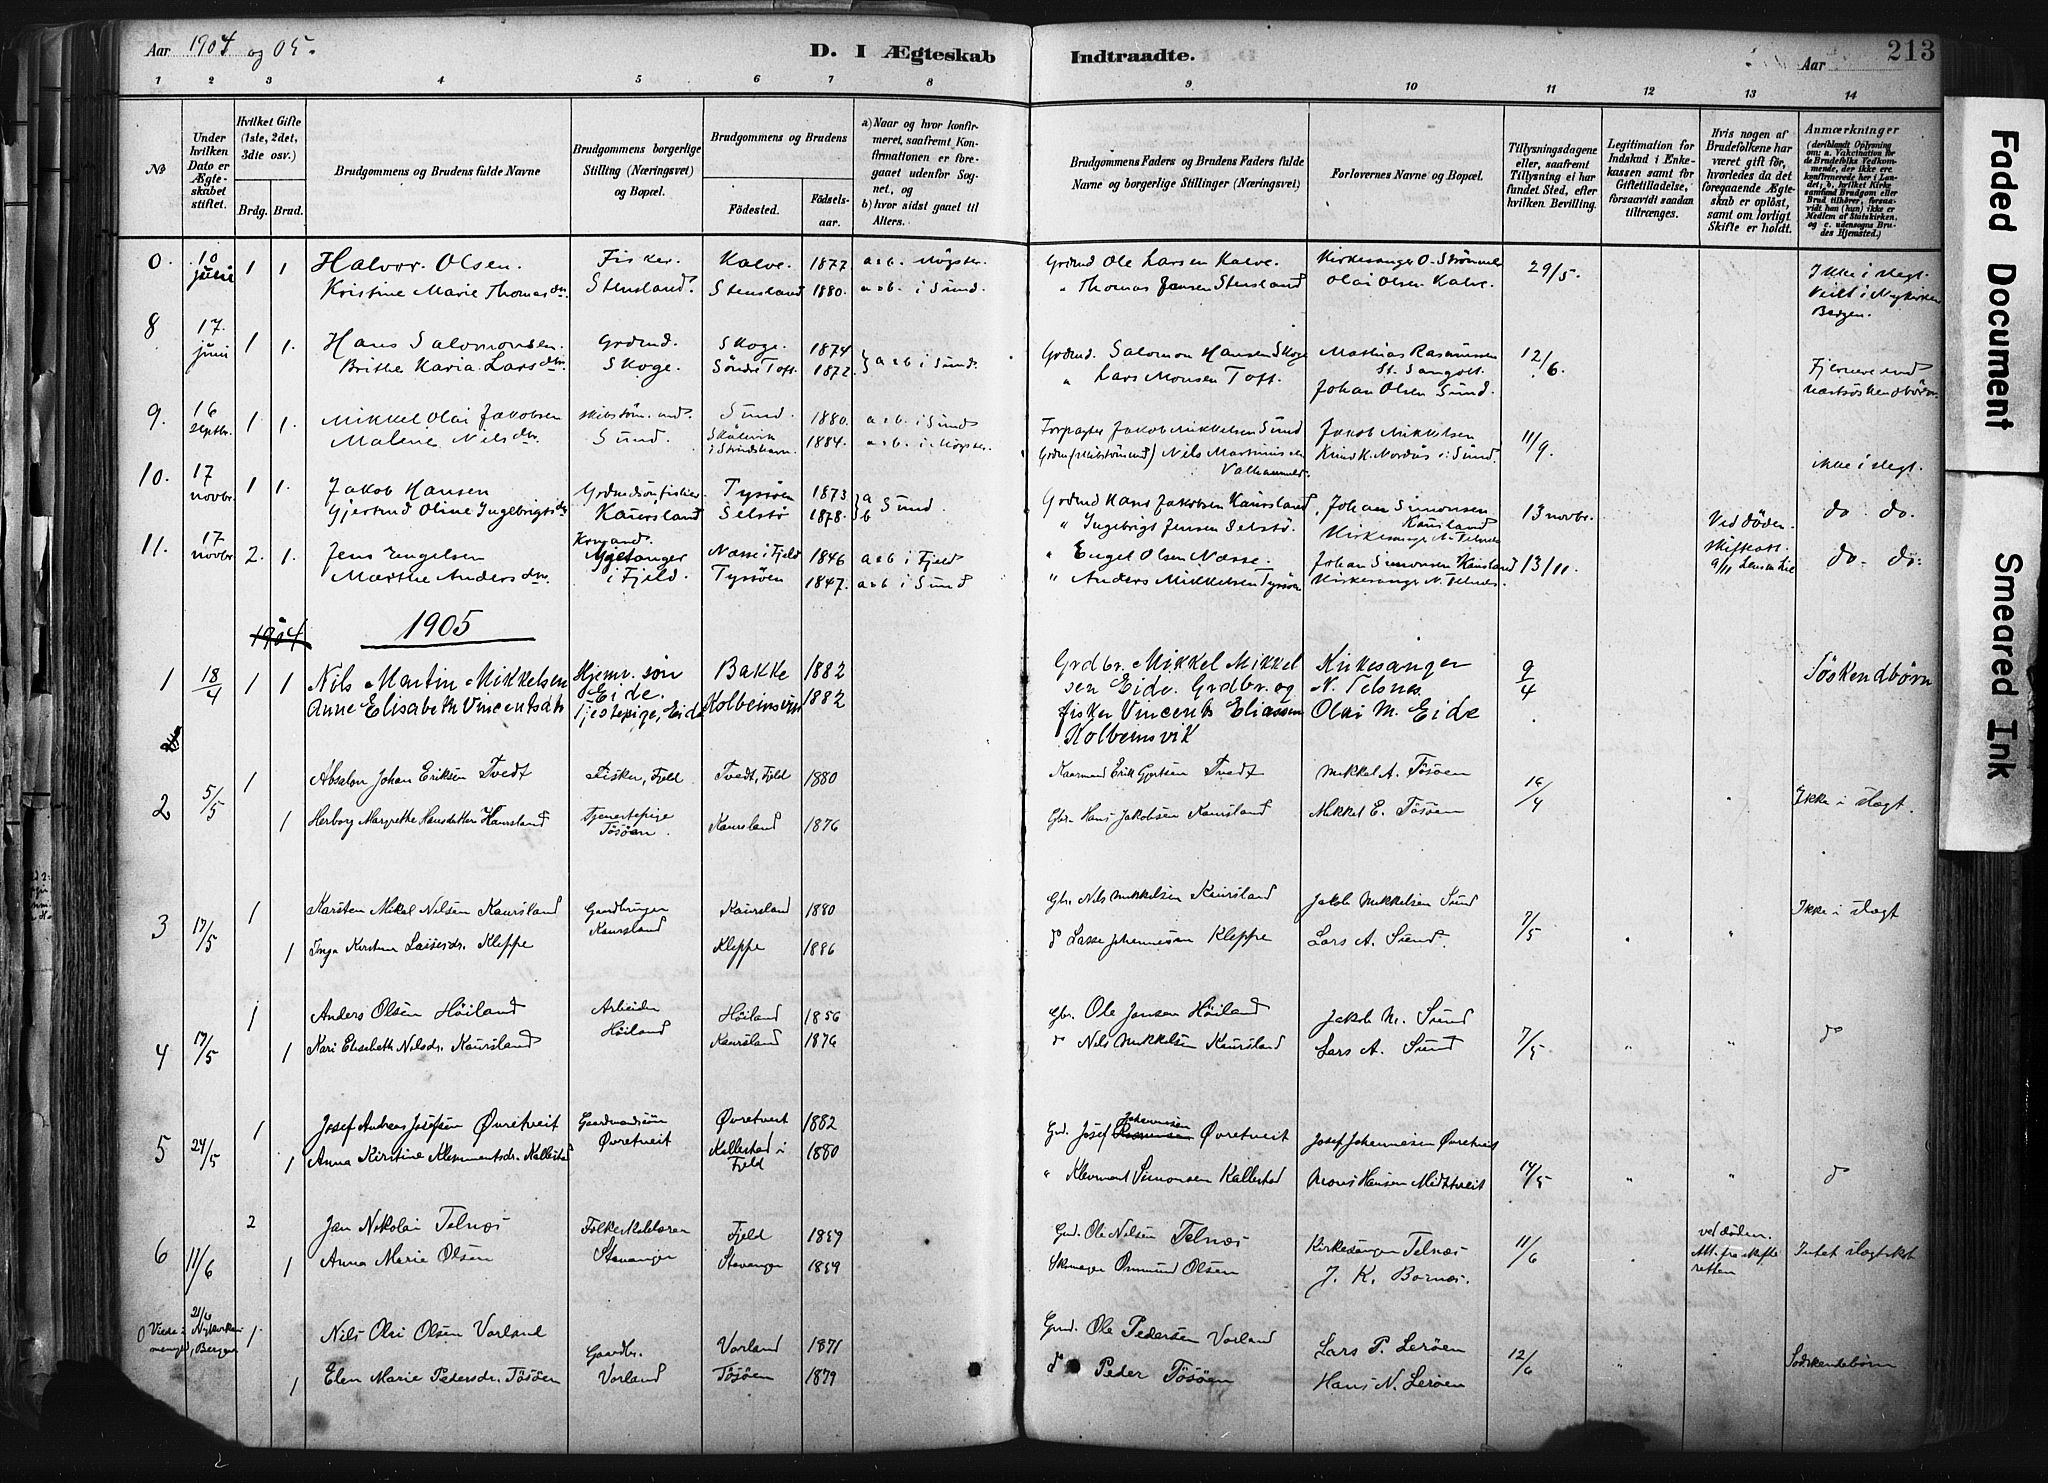 Aar 1904 og 05.
D. I Ægteskab Indtraadte.
Aar 213
1 2 3 4 5 6 7 8 9 10 11 12 13 14
No
Under hvilken Dato er Ægteskabet stiftet.
Hvilket Gifte (1ste, 2det, 3die osv.)
Brdg. Brud.
Brudgommens og Brudens fulde Navne
Brudgommens borgerlige Stilling (Næringsvei) og Bopæl.
Brudgommens og Brudens
Fødested. Fødselsaar.
a) Naar og hvor konfirmeret, saafremt Konfirmationen er foregaaet udenfor Sognet, og
b) hvor sidst gaaet til Alters.
Brudgommens Faders og Brudens Faders fulde Navne og borgerlige Stillinger (Næringsvei)
Forlovernes Navne og Bopæl.
Tillysningsdagene eller, saafremt Tillysning ei har fundet Sted, efter hvilken Bevilling.
Legitimation for Indskud i Enkekassen samt for Giftetilladelse, forsaavidt saadan tiltrænges.
Hvis nogen af Brudefolkene har været gift før, hvorledes da det foregaaende Ægteskab er opløst, samt om lovligt Skifte er holdt.
Anmærkninger
0. 10 juni 1 1 Halvor Olsen. Fisker. Kalve. 1877 a&b. Møgster. Grdmd Ole Larsen Kalve. Kirkesanger O. Strømme 29/5. Ikke i slegt.
Kristine Marie Thomasdtr. Stensland. Stensland 1880. a&b i Sund. " Thomas Jensen Stensland Olai Olsen Kalve. Viet i Nykirken Bergen.
8 17. juni 1 1. Hans Salomonsen. Grdmd. Skoge. 1874 a&b i Sund. Grdmd. Salomon Hansen Skoge Mathias Rasmussen St. Sangolt. 12/6. Fjernere end
Brithe Karia Larsdtr. Skoge. Søndre Toft. 1872. " Lars Monsen Toft. Johan Olsen Sund. næstsøskendebørn
9. 16 septbr. 1. 1. Mikkel Olai Jakobsen Sund. 1880. a&b. i Sund Forpagter Jakob Mikkelsen Sund Jakob Mikkelsen 11/9.
Malene Nilsdtr. Sund. 1884. a&b. i Møgster. Nils Martinussen Knud K. Nordvis i Sund. ikke i slegt.
10. 17 novbr. 1 1. Jakob Hansen Tyssøen 1873 a Sund Grdmd Hans Jakobsen Kaursland, Johan Simonsen Kausland 13 novbr. do do.
Gjertrud Oline Ingebrigtsdtr. Kaursland Selstø 1878. b " Ingebrigt Jensen Selstø.
11. 17 novbr. 2. 1. Jens Engelsen i Fjeld. Næsse i Fjeld 1846 a&b i Fjeld " Engel Olsen Næsse. Johan Simonsen Kausland 13/11. Ved døden. do. do.
Marthe Andersdtr. Tyssøen 1847. a&b i Sund " Anders Mikkelsen Tyssøen Kirkesanger N. Telnes.
1904 1905
1 18/4 1 1 Nils Martin Mikkelsen Hjemv. søn Eide. Bakke 1882 Grdbr. Mikkel Mikkelsen Eide. Kirkesanger N. Telsnes 9/4 Söskendbørn
Anne Elisabeth Vincentsdtr Tjestepige, Eide Kolbeinsvik 1882 Grdbr. og fisker Vincents Eliassen Kolbeinsvik Olai M. Eide
2 5/5 1 Absalon Johan Eriksen Tvedt Fisker, Fjeld Tvedt, Fjeld 1880 Kaarmand Erik Gjertsen Tvedt Mikkel A. Tösöen 16/4 Ikke i slagt.
1 Herborg Margrethe Hansdatter Kaursland Tjenestepige Tösöen. Kaursland 1876 Gbr. Hans Jakobsen Kaursland Mikkel E. Tösöen
3 17/5 1 Karsten Mikal Nilsen Kaursland Gaardbruger Kaursland Kaursland 1880 Gbr. Nils Mikkelsen Kaursland Jakob Mikkelsen Sund 7/5 " Ikke i slagt
1 Inga Kirstine Lassesdr. Kleppe Kleppe 1886 d Lasse Johannessen Kleppe Lars A. Sund.
4 17/5 1 Anders Olsen Höiland Arbeider Höiland Höiland 1856 Gbr. Ole Jansen Höiland Jakob M. Sund 7/5 " " d
1 Kari Elisabeth Nilsdr. Kaursland Kaursland 1876 " Nils Mikkelsen Kaursland Lars A. Sund
5 24/5 1 Josef Andreas Josefsen Øvretveit Gaardmandssøn Øvretveit Øvretveit 1882 Gmd. Josef Johannesen Øvretveit Josef Johannesen Øvretveit 14/5 " " d
1 Anna Kirstine Klementsdr. Kallestad Kallestad i Fjeld 1880 " Klement Simonsen Kallestad Mons Hansen Midttveit
6 11/6 2 Jan Nikolai Telnæs Stavanger Fjeld 1859 Gmd. Ole Nilsen Telnæs Kirkesanger Telnæs 11/6 ved døden. Att. fra skifteretten
1 Anna Marie Olsen Stavanger 1859 Ommund Olsen J. K. Bornæs.
0 Viede i Nykirken menighed, Bergen 21/6 1. Nils Olai Olsen Vorland Gaardbr. Vorland Vorland 1871 Gmd. Ole Pedersen Vorland Lars P. Leröen 12/6 " " Södskendebørn
1 Elen Marie Pedersdr. Tösöen Tösöen 1879 d Peder Tösöen Hans N. Leröen
Faded Document
Smeared Ink